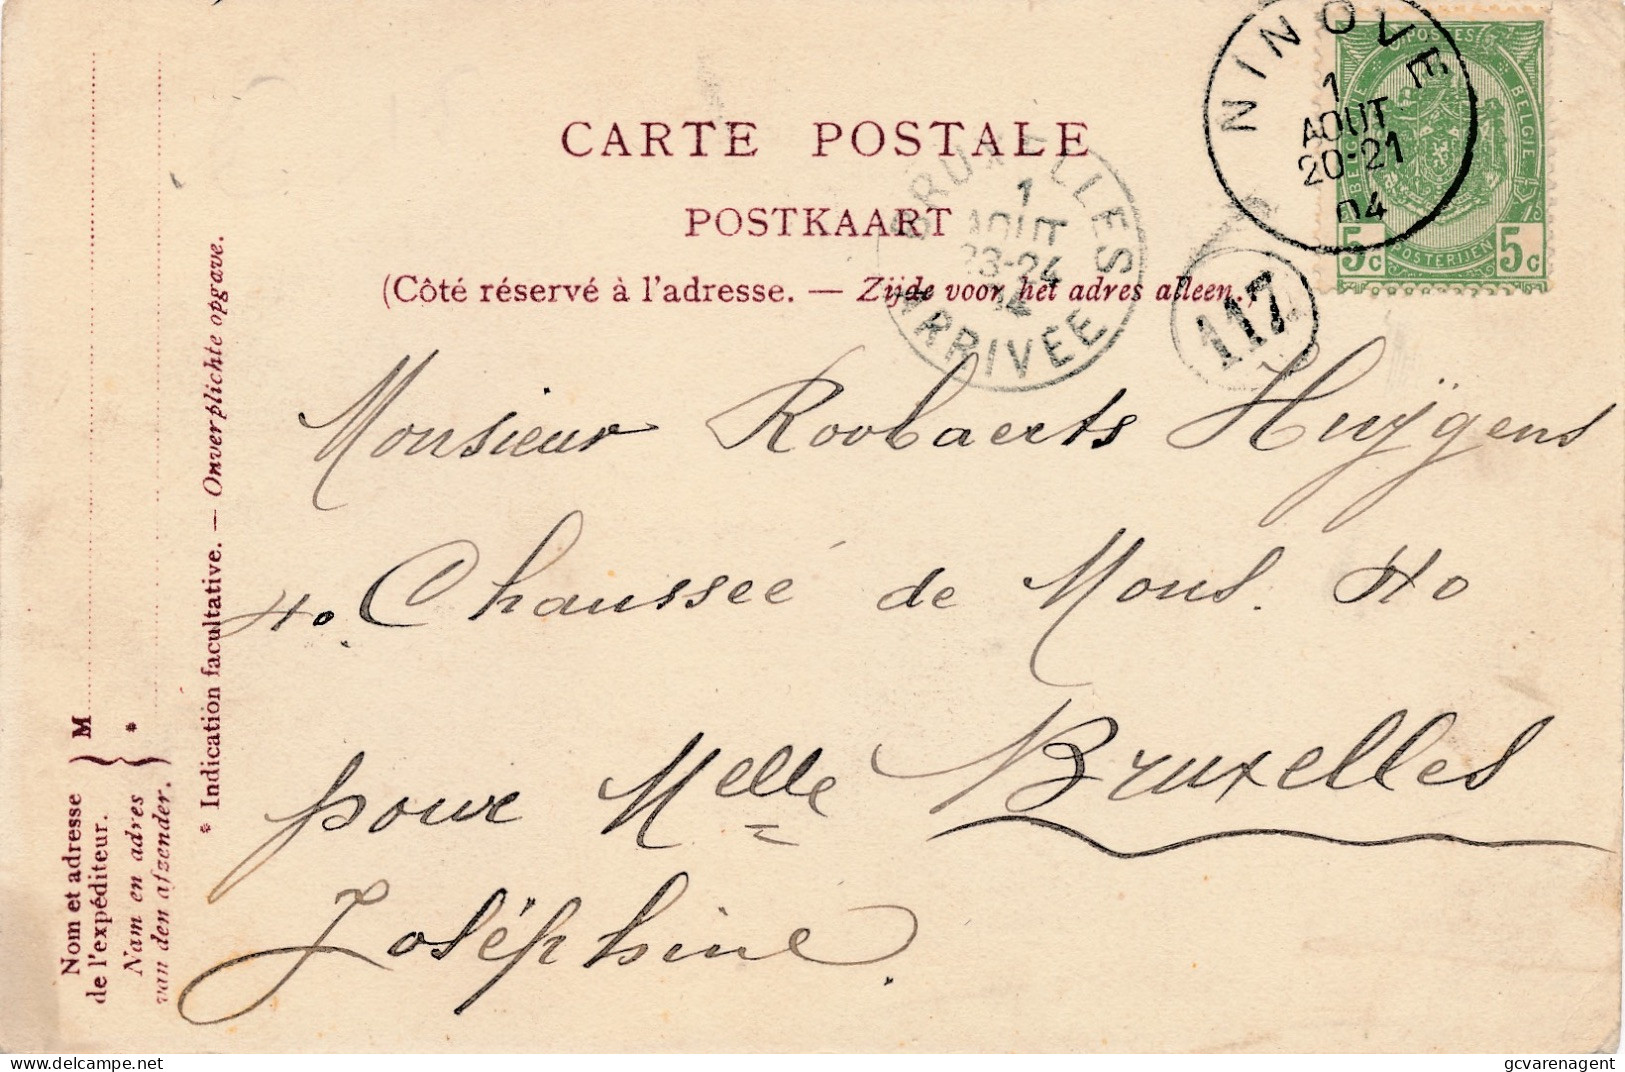 CARTE POSTALE
POSTKAART
(Côté réservé à l'adresse. — Zijde voor het adres alleen.)
NINOVE
1
AOUT
20-21
04
POSTES
BELGIQUE
BELGIE
POSTERIJEN
5c 5c
BRUXELLES
1
AOUT
23-24
04
ARRIVÉE
117
Monsieur Roobaerts Huÿgens
40. Chaussée de Mons. 40
pour Melle Bruxelles
Joséphine.
* Indication facultative. — Onverplichte opgave.
Nom et adresse
de l'expéditeur.
Nam en adres
van den afzender.
M
*
delcampe.net
gcvarenagent